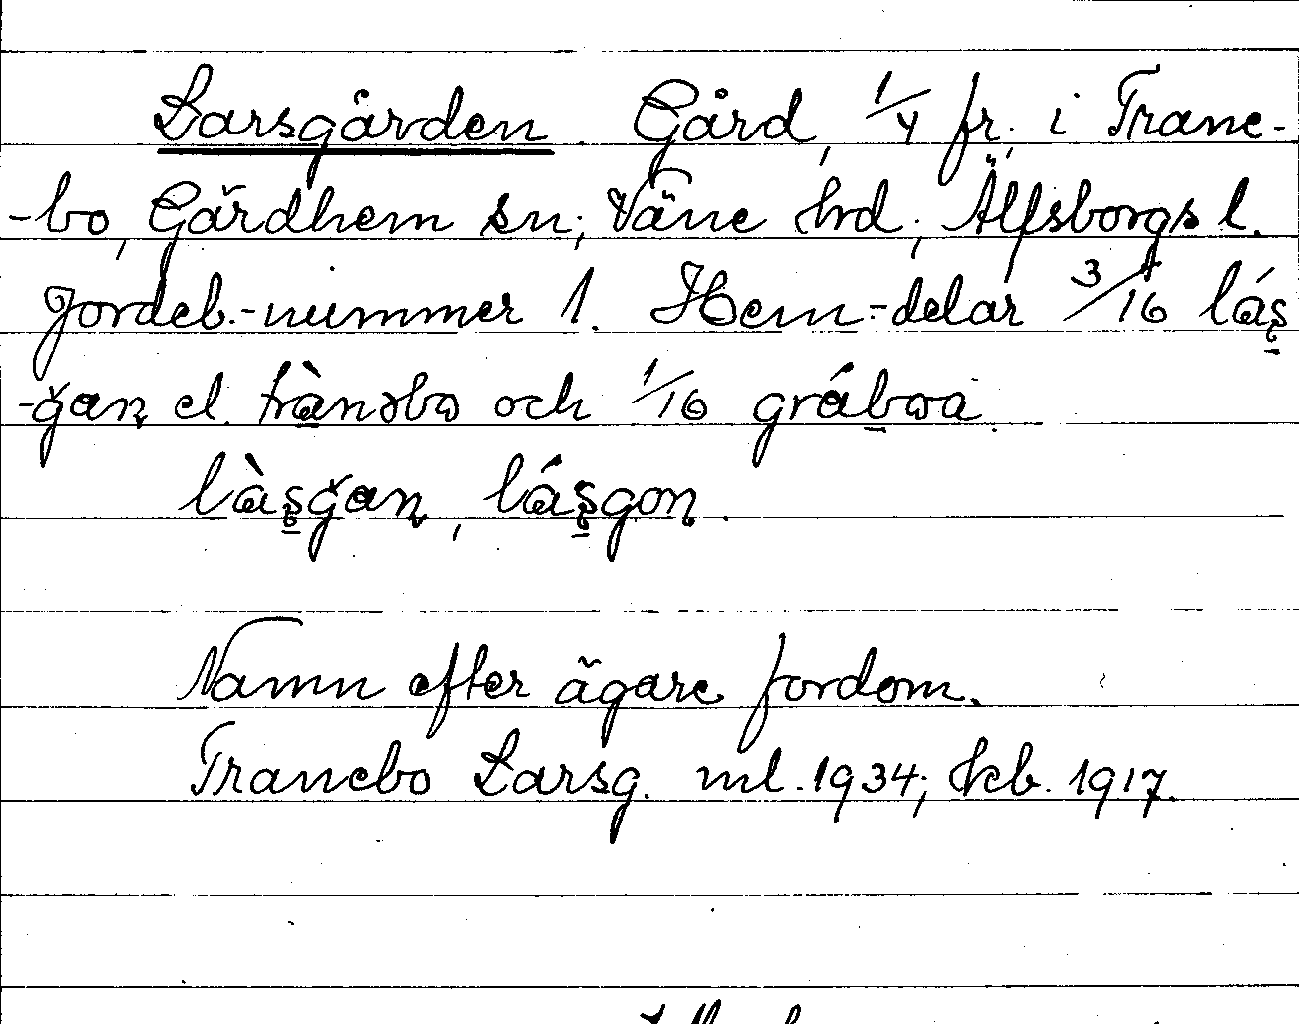 Larsgården. Gård, 1/4 fr. i Trane-
-bo, Gärdhem sn; Väne hd; Älfsborgs l.
Jordeb.-nummer 1. Hem-delar 3/16 lás̱
-ğaɳ el. trànəbɷ och 1/16 gráḇɷa.
làs̱ğaɳ, lás̱goɳ.
Namn efter ägare fordom.
Tranebo Larsg. ml. 1934; Jeb. 1917.